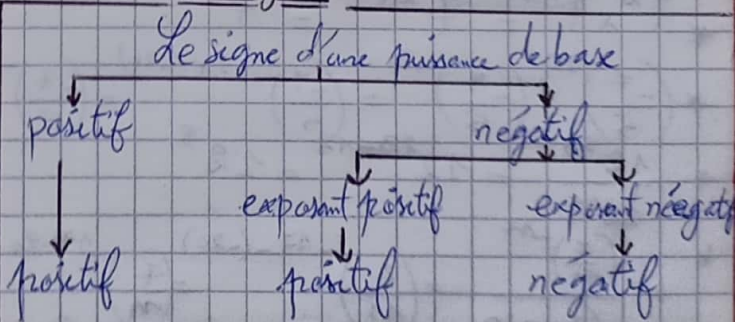 Le signe d'une puissance de base
positif négatif
exposant positif exposant néegatif
positif positif négatif